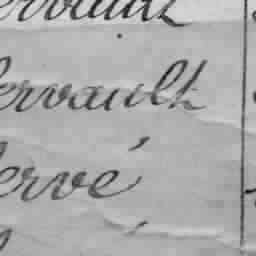 ervault
ervault
ervé